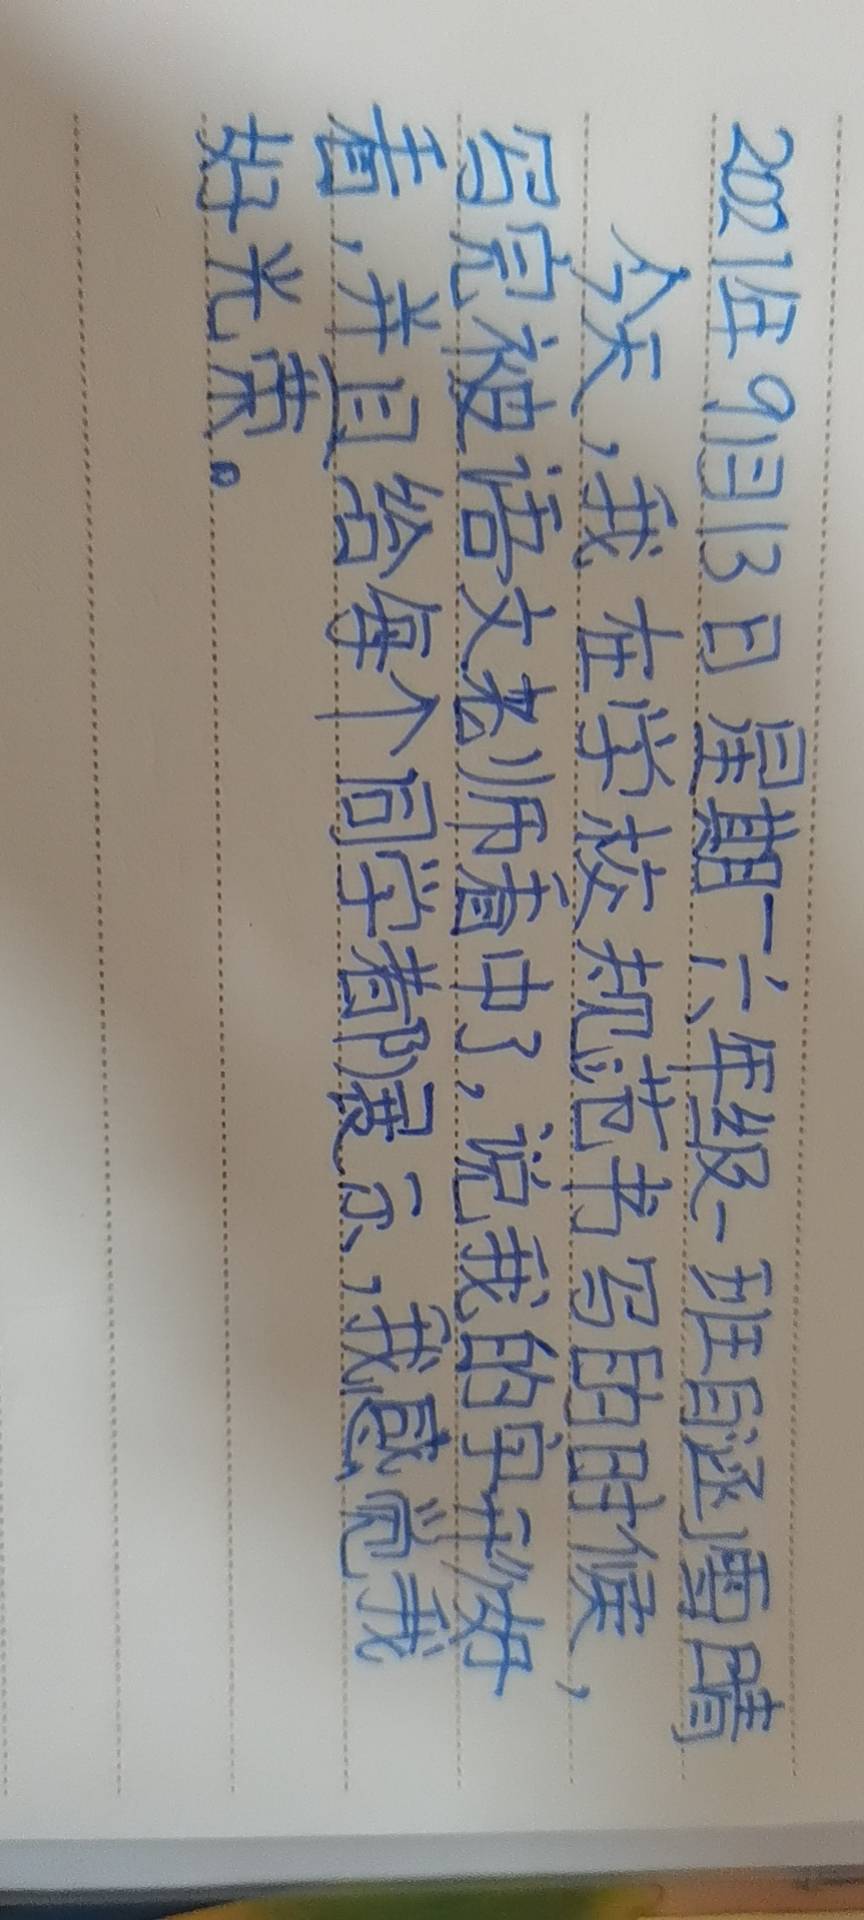 2021年9月13日 星期一六年级一班白涵雪晴
今天,我在学校规范书写的时候,
写完被语文老师看中了,说我的字形好
看,并且给每个同学都展示,我感觉我
好光荣。